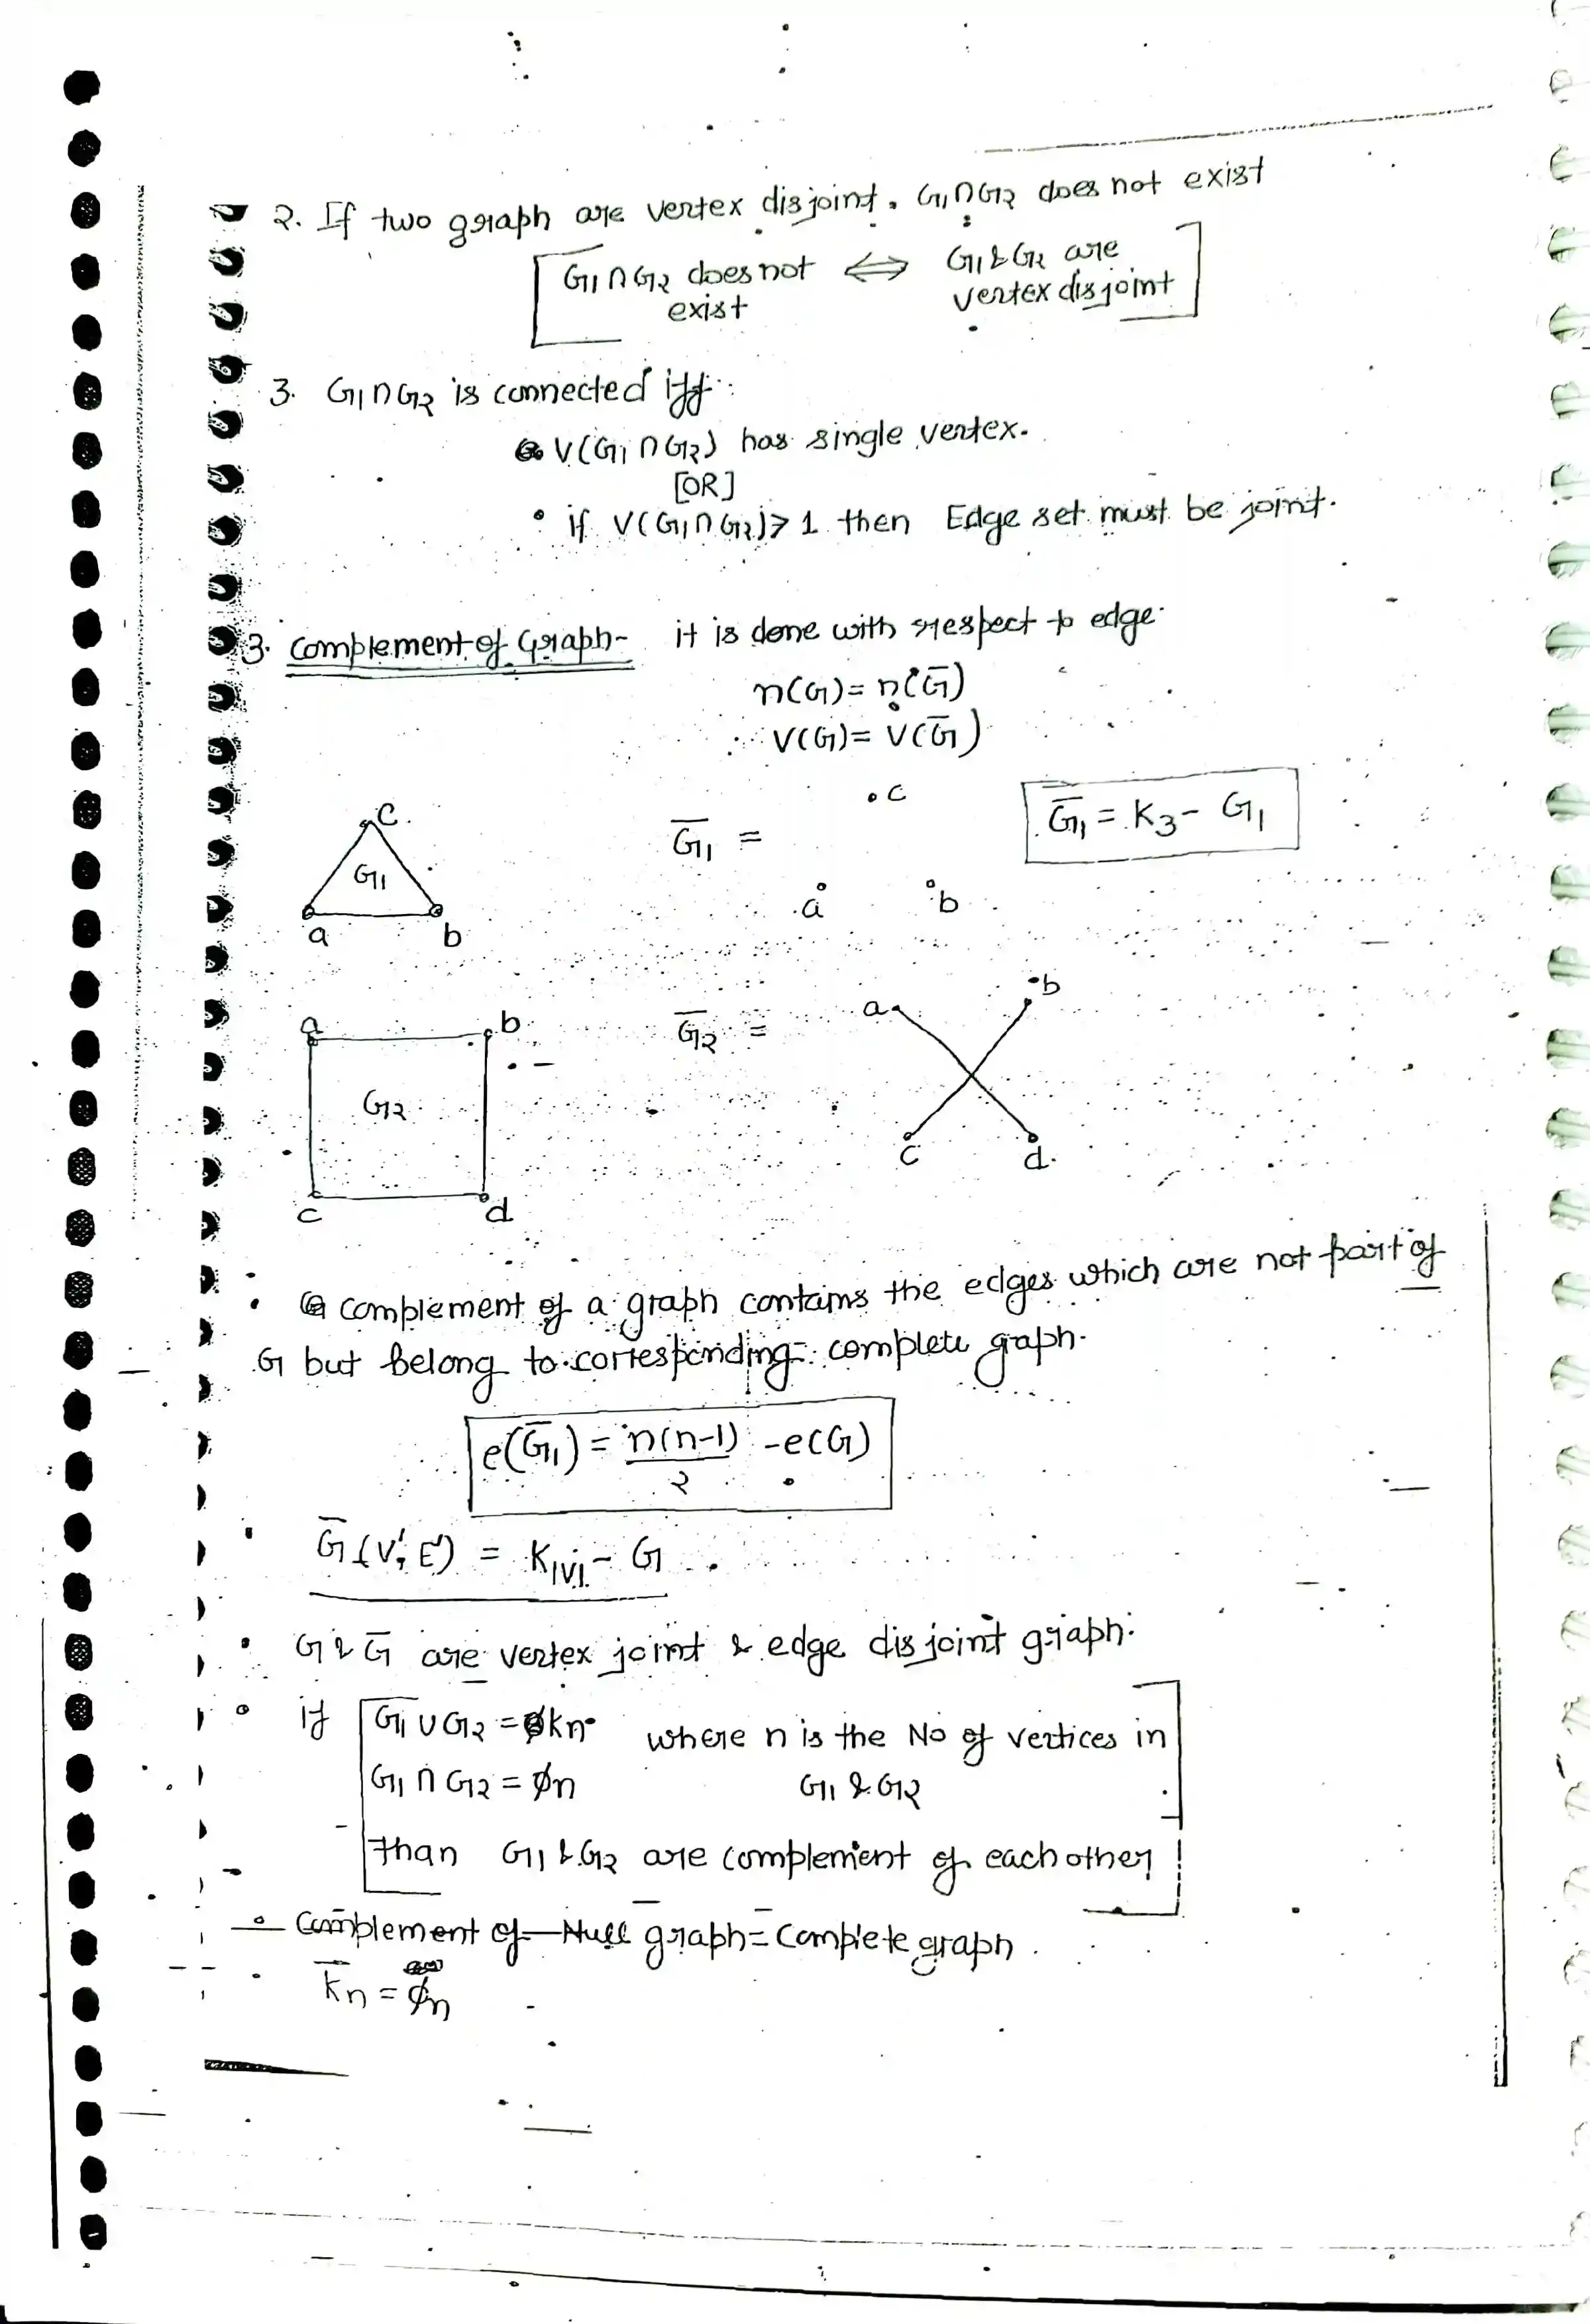 2. If two graph are vertex disjoint, G1∩G2 does not exist
G1∩G2 does not ⟺ G1 & G2 are
exist vertex disjoint
3. G1∩G2 is connected iff:
V(G1∩G2) has single vertex.
[OR]
• if V(G1∩G2)> 1 then Edge set must be joint.
3. Complement of Graph- it is done with respect to edge.
n(G)= n(G̅)
∴ V(G)= V(G̅)
.c
c G̅1 = K3 - G1
G̅1 =
G1
.a .b
a b
a b
a b
G̅2 =
G2
c d
c d
• complement of a graph contains the edges which are not part of
G but belong to corresponding complete graph.
e(G̅1) = n(n-1)/2 - e(G)
• G̅(V', E') = K|V| - G
• G & G̅ are vertex joint & edge disjoint graph.
• if G1∪G2 = Kn where n is the No of vertices in
G1∩G2 = ϕn G1 & G2
than G1 & G2 are complement of each other
• Complement of Null graph = Complete graph.
• K̅n = ϕn